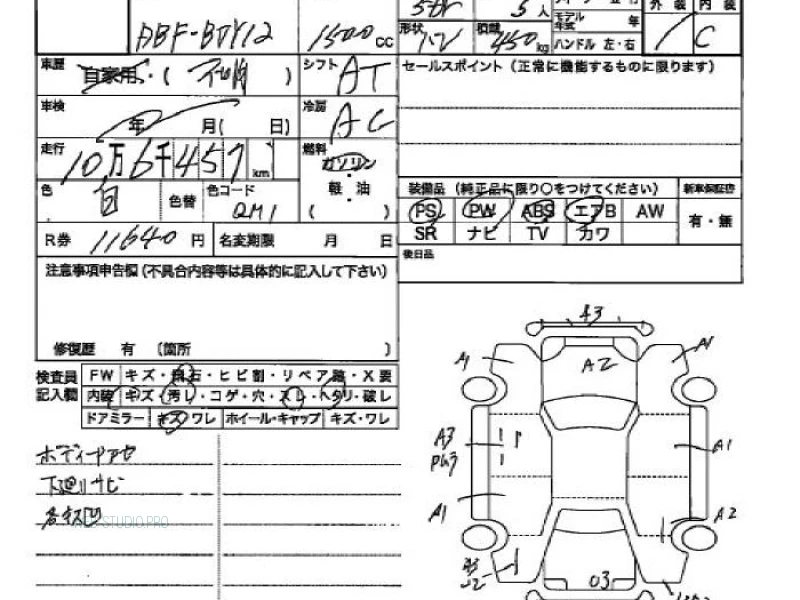 5 人
外装 内装
モデル年式 年
DBF-BVY12 1500 cc 形状 バン 積載 450 kg ハンドル 左・右 / C
車歴 自家用・( ) シフト AT セールスポイント(正常に機能するものに限ります)
車検 年 月( 日) 冷房 AC
走行 10万6千457 km 燃料 ガソリン
軽・油
( )
色 白 色替 色コード QM1
装備品(純正品に限り○をつけてください) 新車保証書
PS PW ABS エアB AW 有・無
SR ナビ TV カワ
R券 11640 円 名変期限 月 日
後日品
注意事項申告欄(不具合内容等は具体的に記入して下さい)
修復歴 有 〔箇所 〕
検査員記入欄 FW キズ・飛石・ヒビ割・リペア跡・X要
内装 キズ・汚レ・コゲ・穴・スレ・ヘタリ・破レ
ドアミラー キズ・ワレ ホイール・キャップ キズ・ワレ
ボディーヤケ
下廻リサビ
STUDIO.PRO
43
A1 A2 A1
A3 A1
A1 A2
03